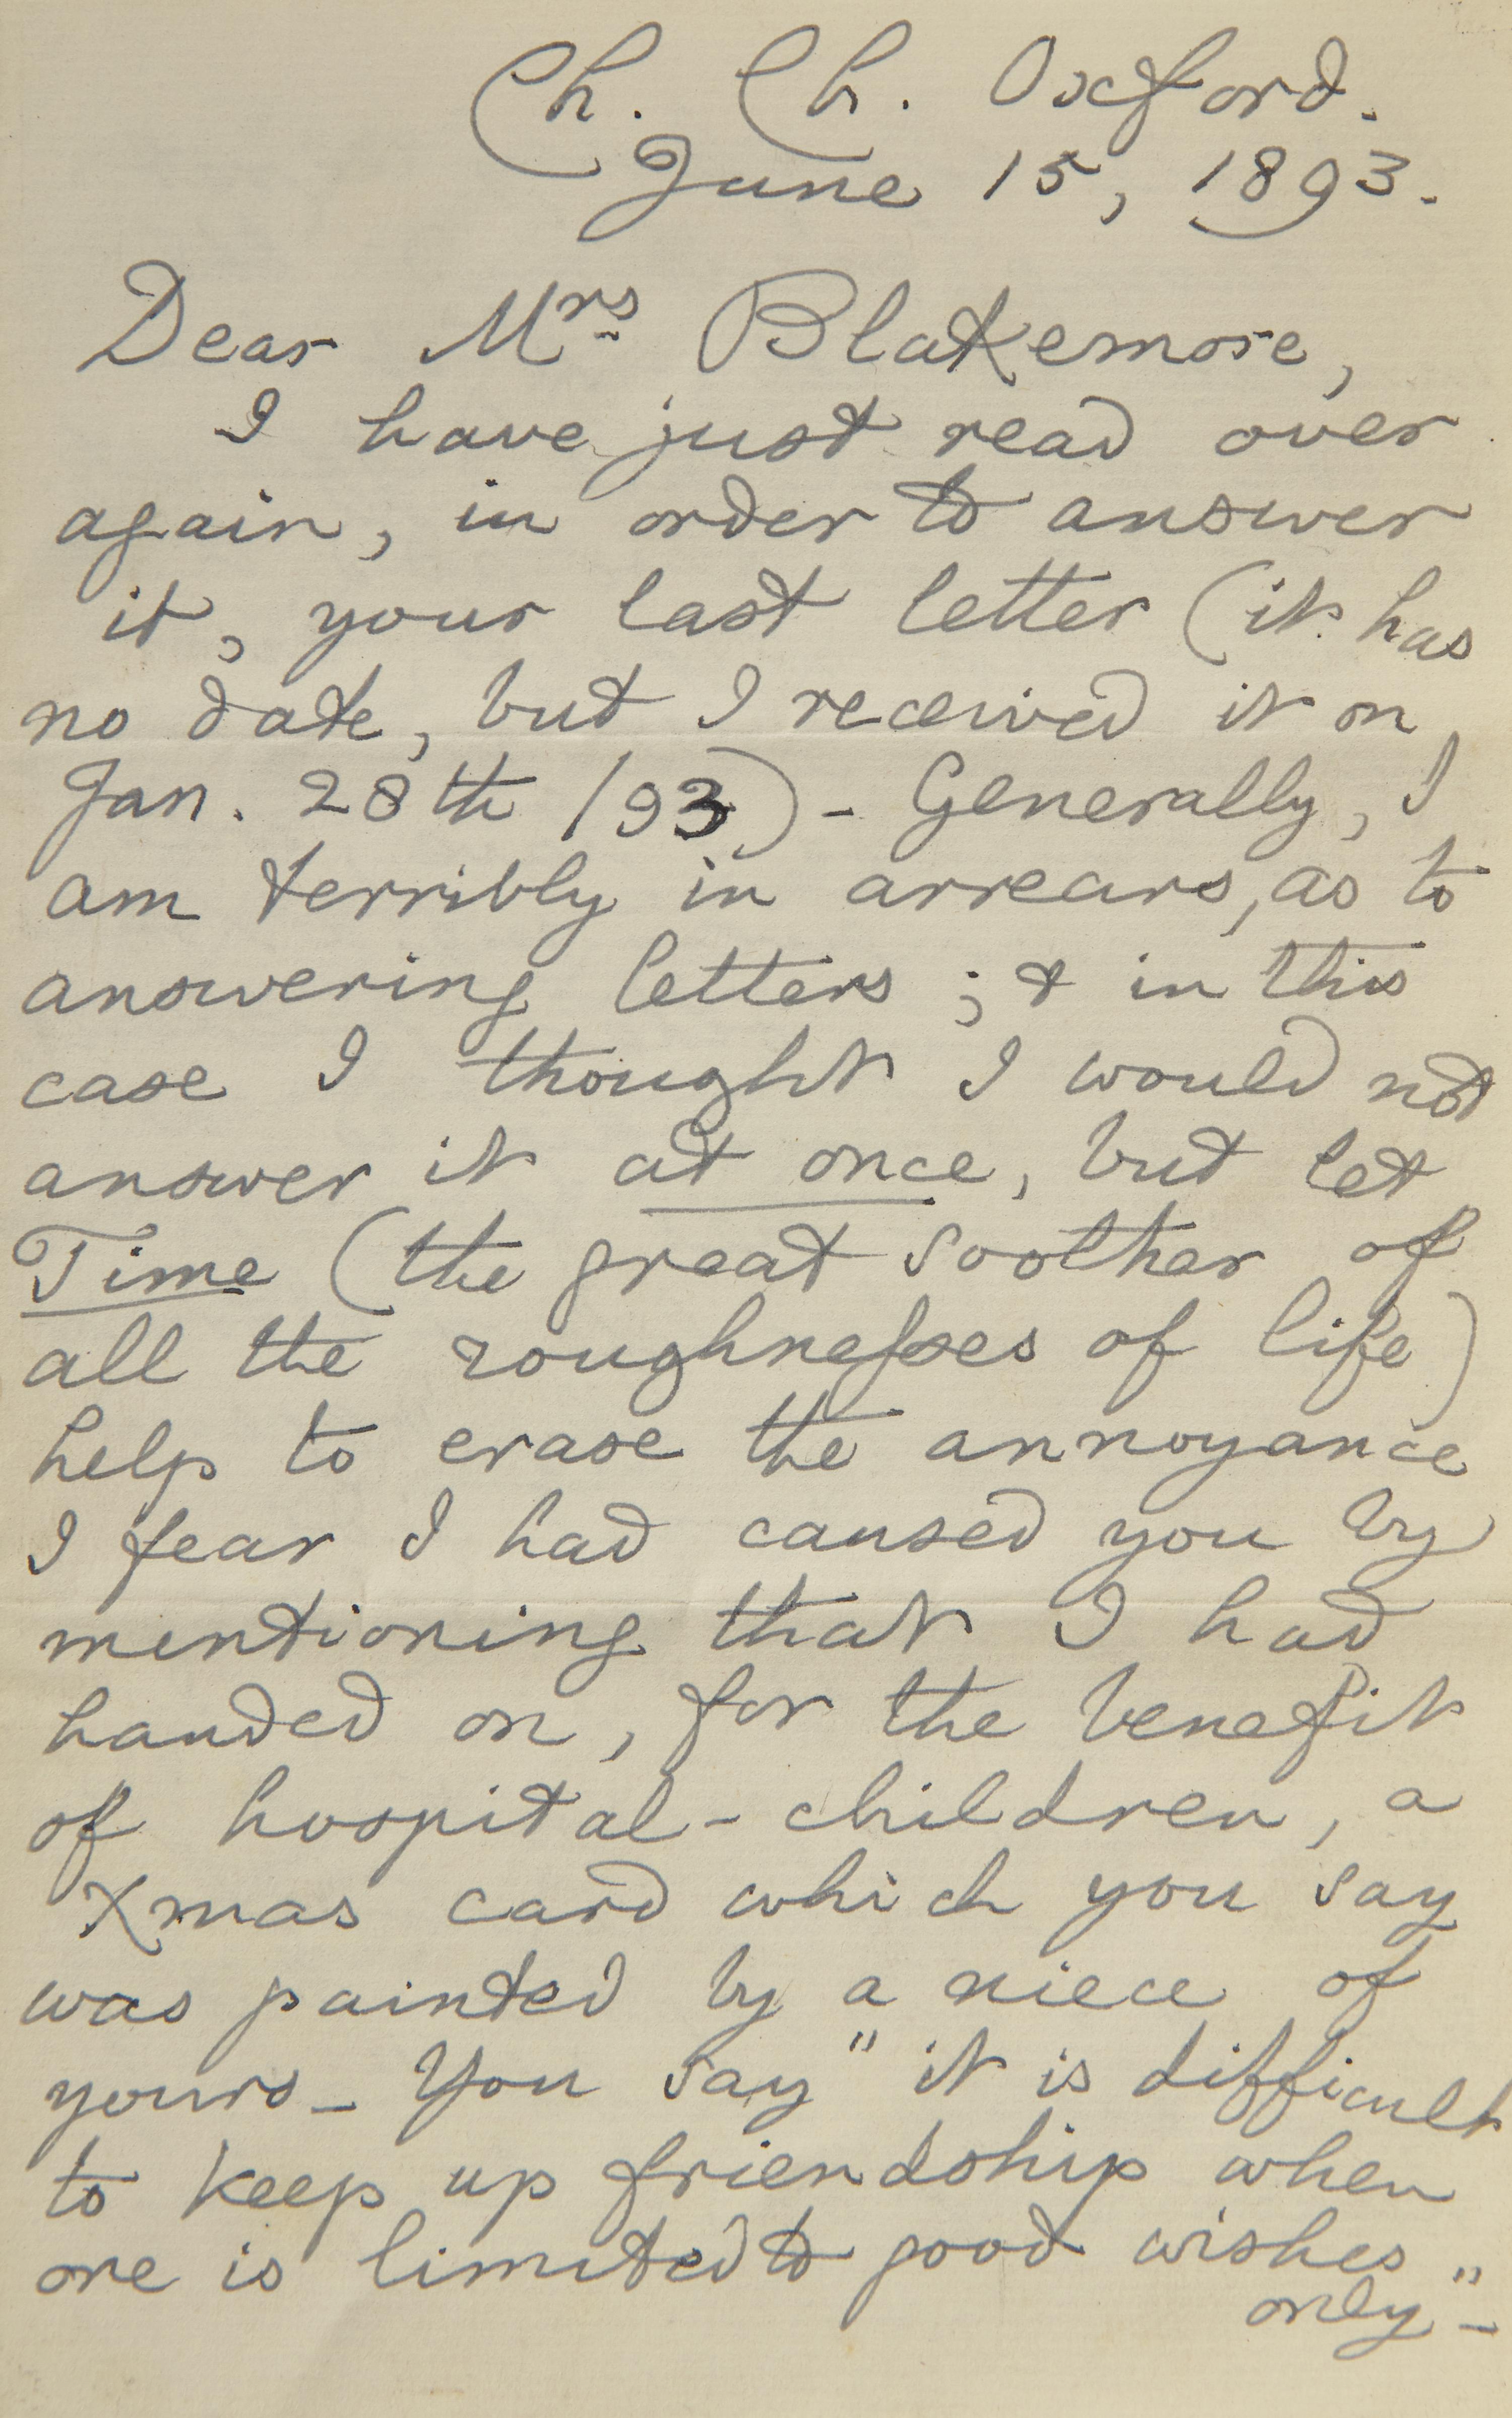 Ch. Ch. Oxford.
June 15, 1893.
Dear Mrs Blakemore,
I have just read over
again, in order to answer
it, your last letter (it has
no date, but I received it on
Jan. 28th /93) - Generally, I
am terribly in arrears, as to
answering letters; & in this
case I thought I would not
answer it at once, but let
Time (the great soother of
all the roughnesses of life)
help to erase the annoyance
I fear I had caused you by
mentioning that I had
handed on, for the benefit
of hospital-children, a
Xmas card which you say
was painted by a niece of
yours - You say "it is difficult
to keep up friendship when
one is limited to good wishes
only" -